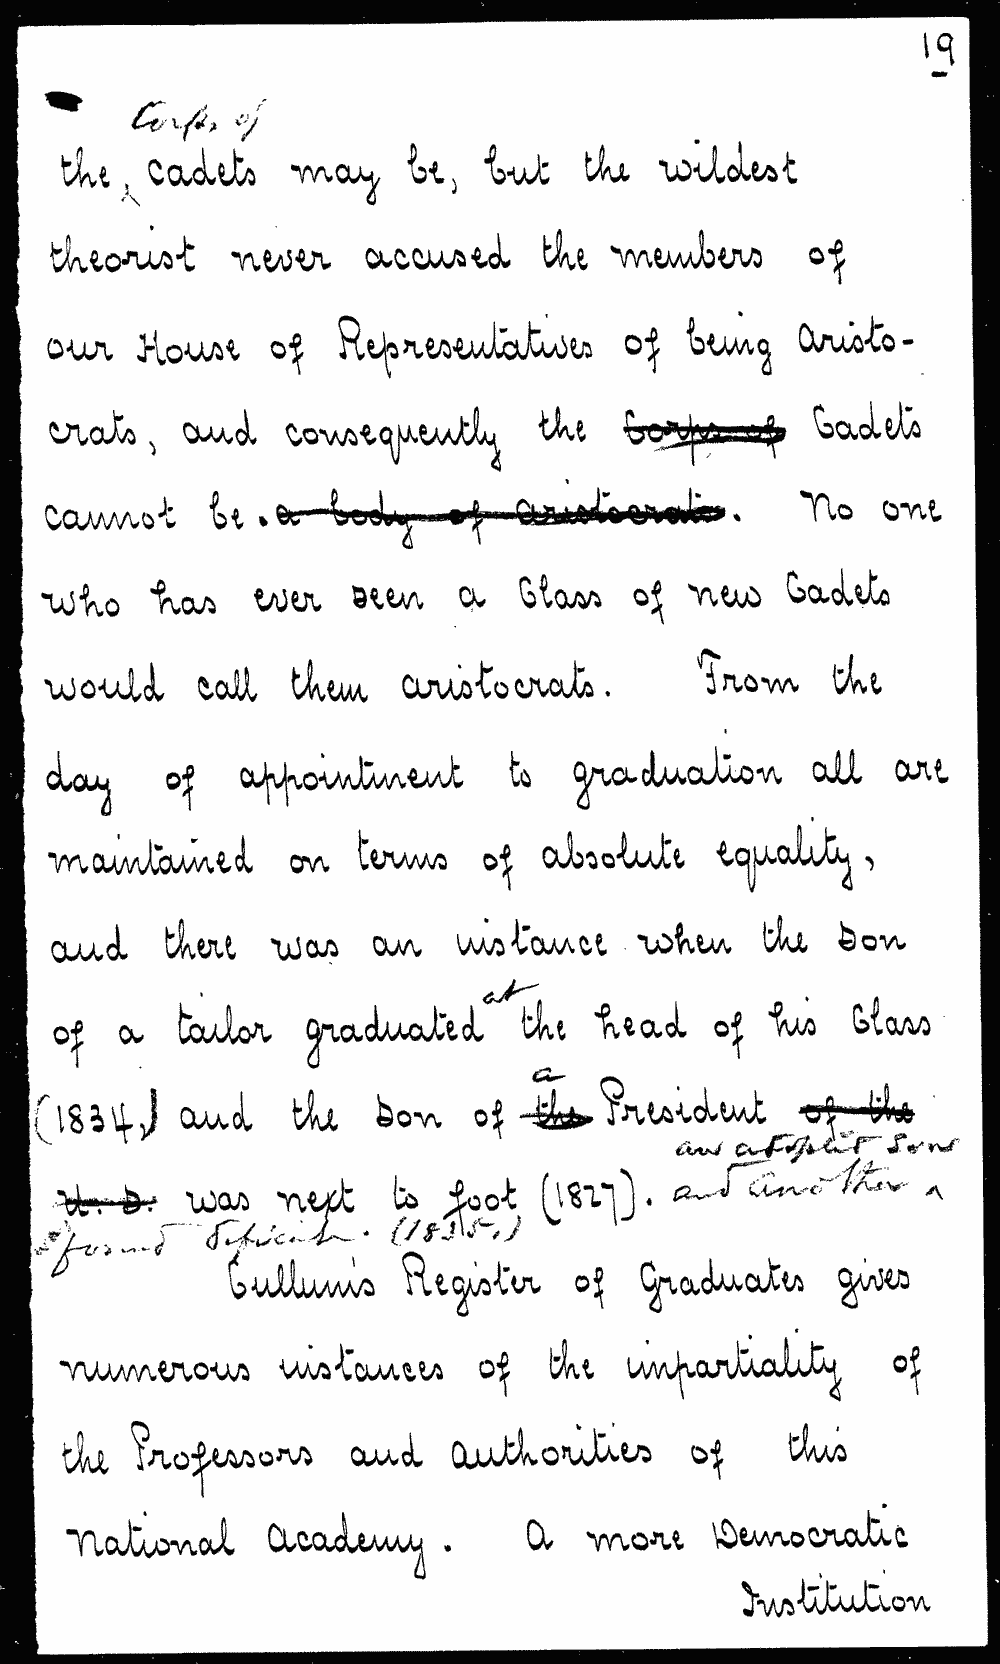 19
Corps of
the cadets may be, but the wildest
theorist never accused the members of
our House of Representatives of being Aristo-
crats, and consequently the Corps of Cadets
cannot be. a body of aristocrats. No one
who has ever seen a Class of new Cadets
would call them aristocrats. From the
day of appointment to graduation all are
maintained on terms of absolute equality,
and there was an instance when the son
at
of a tailor graduated the head of his Class
a
(1834,) and the son of the President of the
an adopted son
U. S. was next to foot (1827). and another
found deficient. (1835,)
Cullum's Register of Graduates gives
numerous instances of the impartiality of
the Professors and Authorities of this
National Academy. A more Democratic
Institution